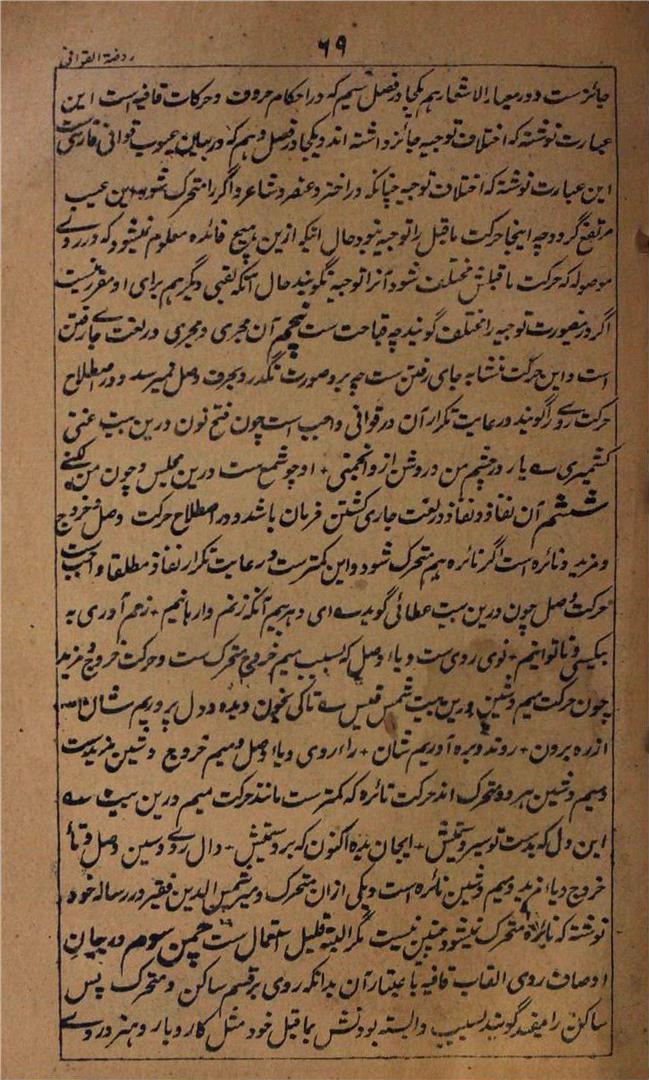 ۶۹
روضة القوافی
جائزست و در معیار الاشعار هم یکجا در فصل سیم که در احکام حروف و حرکات قافیه است این
عبارت نوشته که اختلاف توجیه جائز داشته اند و یکجا در فصل دهم که در بیان عیوب قوافی فارسی ست
این عبارت نوشته که اختلاف توجیه چنانکه در اختر و عنصر و شاعر و اگر را متحرک شود این عیب
مرتفع گردد چه اینجا حرکت ماقبل را توجیه نبود حال آنکه ازین هیچ فائده معلوم نمیشود که در روی
موصوله که حرکت ماقبلش مختلف شود آنرا توجیه نگویند حال آنکه لقبی دیگر هم برای او مقرر نیست
اگر درینصورت توجیه را مختلف گویند چه قباحت ست پنجم آن مجری و مجری در لغت جای رفتن
است و این حرکت نشابه جای رفتن ست چه بر و صورت نگذرد بحرف وصل نمیرسد و در اصطلاح
حرکت روی را گویند و رعایت تکرار آن در قوافی واجب است چون فتح نون درین بیت غنی
کشمیری ے یار در چشم من و روشن از و انجمنی + او چو شمع ست درین مجلس و چون من لگنے
ششم آن نفاذ و نفاذ در لغت جاری گشتن فرمان باشد و در اصطلاح حرکت وصل و خروج
و مزید و نائره است اگر نائره هم متحرک شود و این کمتر ست و رعایت تکرار نفاذ مطلقا واجبست
حرکت وصل چون درین بیت عطائی گوید ے ای دهیم آنکه زغم وارهانیم + زحم آوری به
بیکسی و ناتوانیم + نون روی ست و یاء وصل که بسبب میم خروج متحرک ست و حرکت خروج و مزید
چون حرکت میم و شین درین بیت شمس قیس ے تا کی بخون دیده و دل پروریم شان +
از ره برون + روند و بره آوریم شان + را روی و یاء وصل و میم خروج و شین مزیدست
و میم و شین هر دو متحرک اند حرکت نائره که کمترست مانند حرکت میم درین بیت ے
این دل که بدست تو سپردستمش + ایجان بده اکنون که بردستمیش + دال روی و سین وصل و تا
خروج و یا مزید و میم و شین نائره است و یکی ازان متحرک و میر شمس الدین فقیر در رساله خود
نوشته که نائره متحرک نمیشود و چنین نیست مگر البته قلیل استعمال ست چمن سوم در بیان
اوصاف روی القاب قافیه باعتبار آن بدانکه روی بر دو قسم ساکن و متحرک پس
ساکن را مقید گویند بسبب وابسته بودنش بماقبل خود مثل کار و بار و هنر و روی